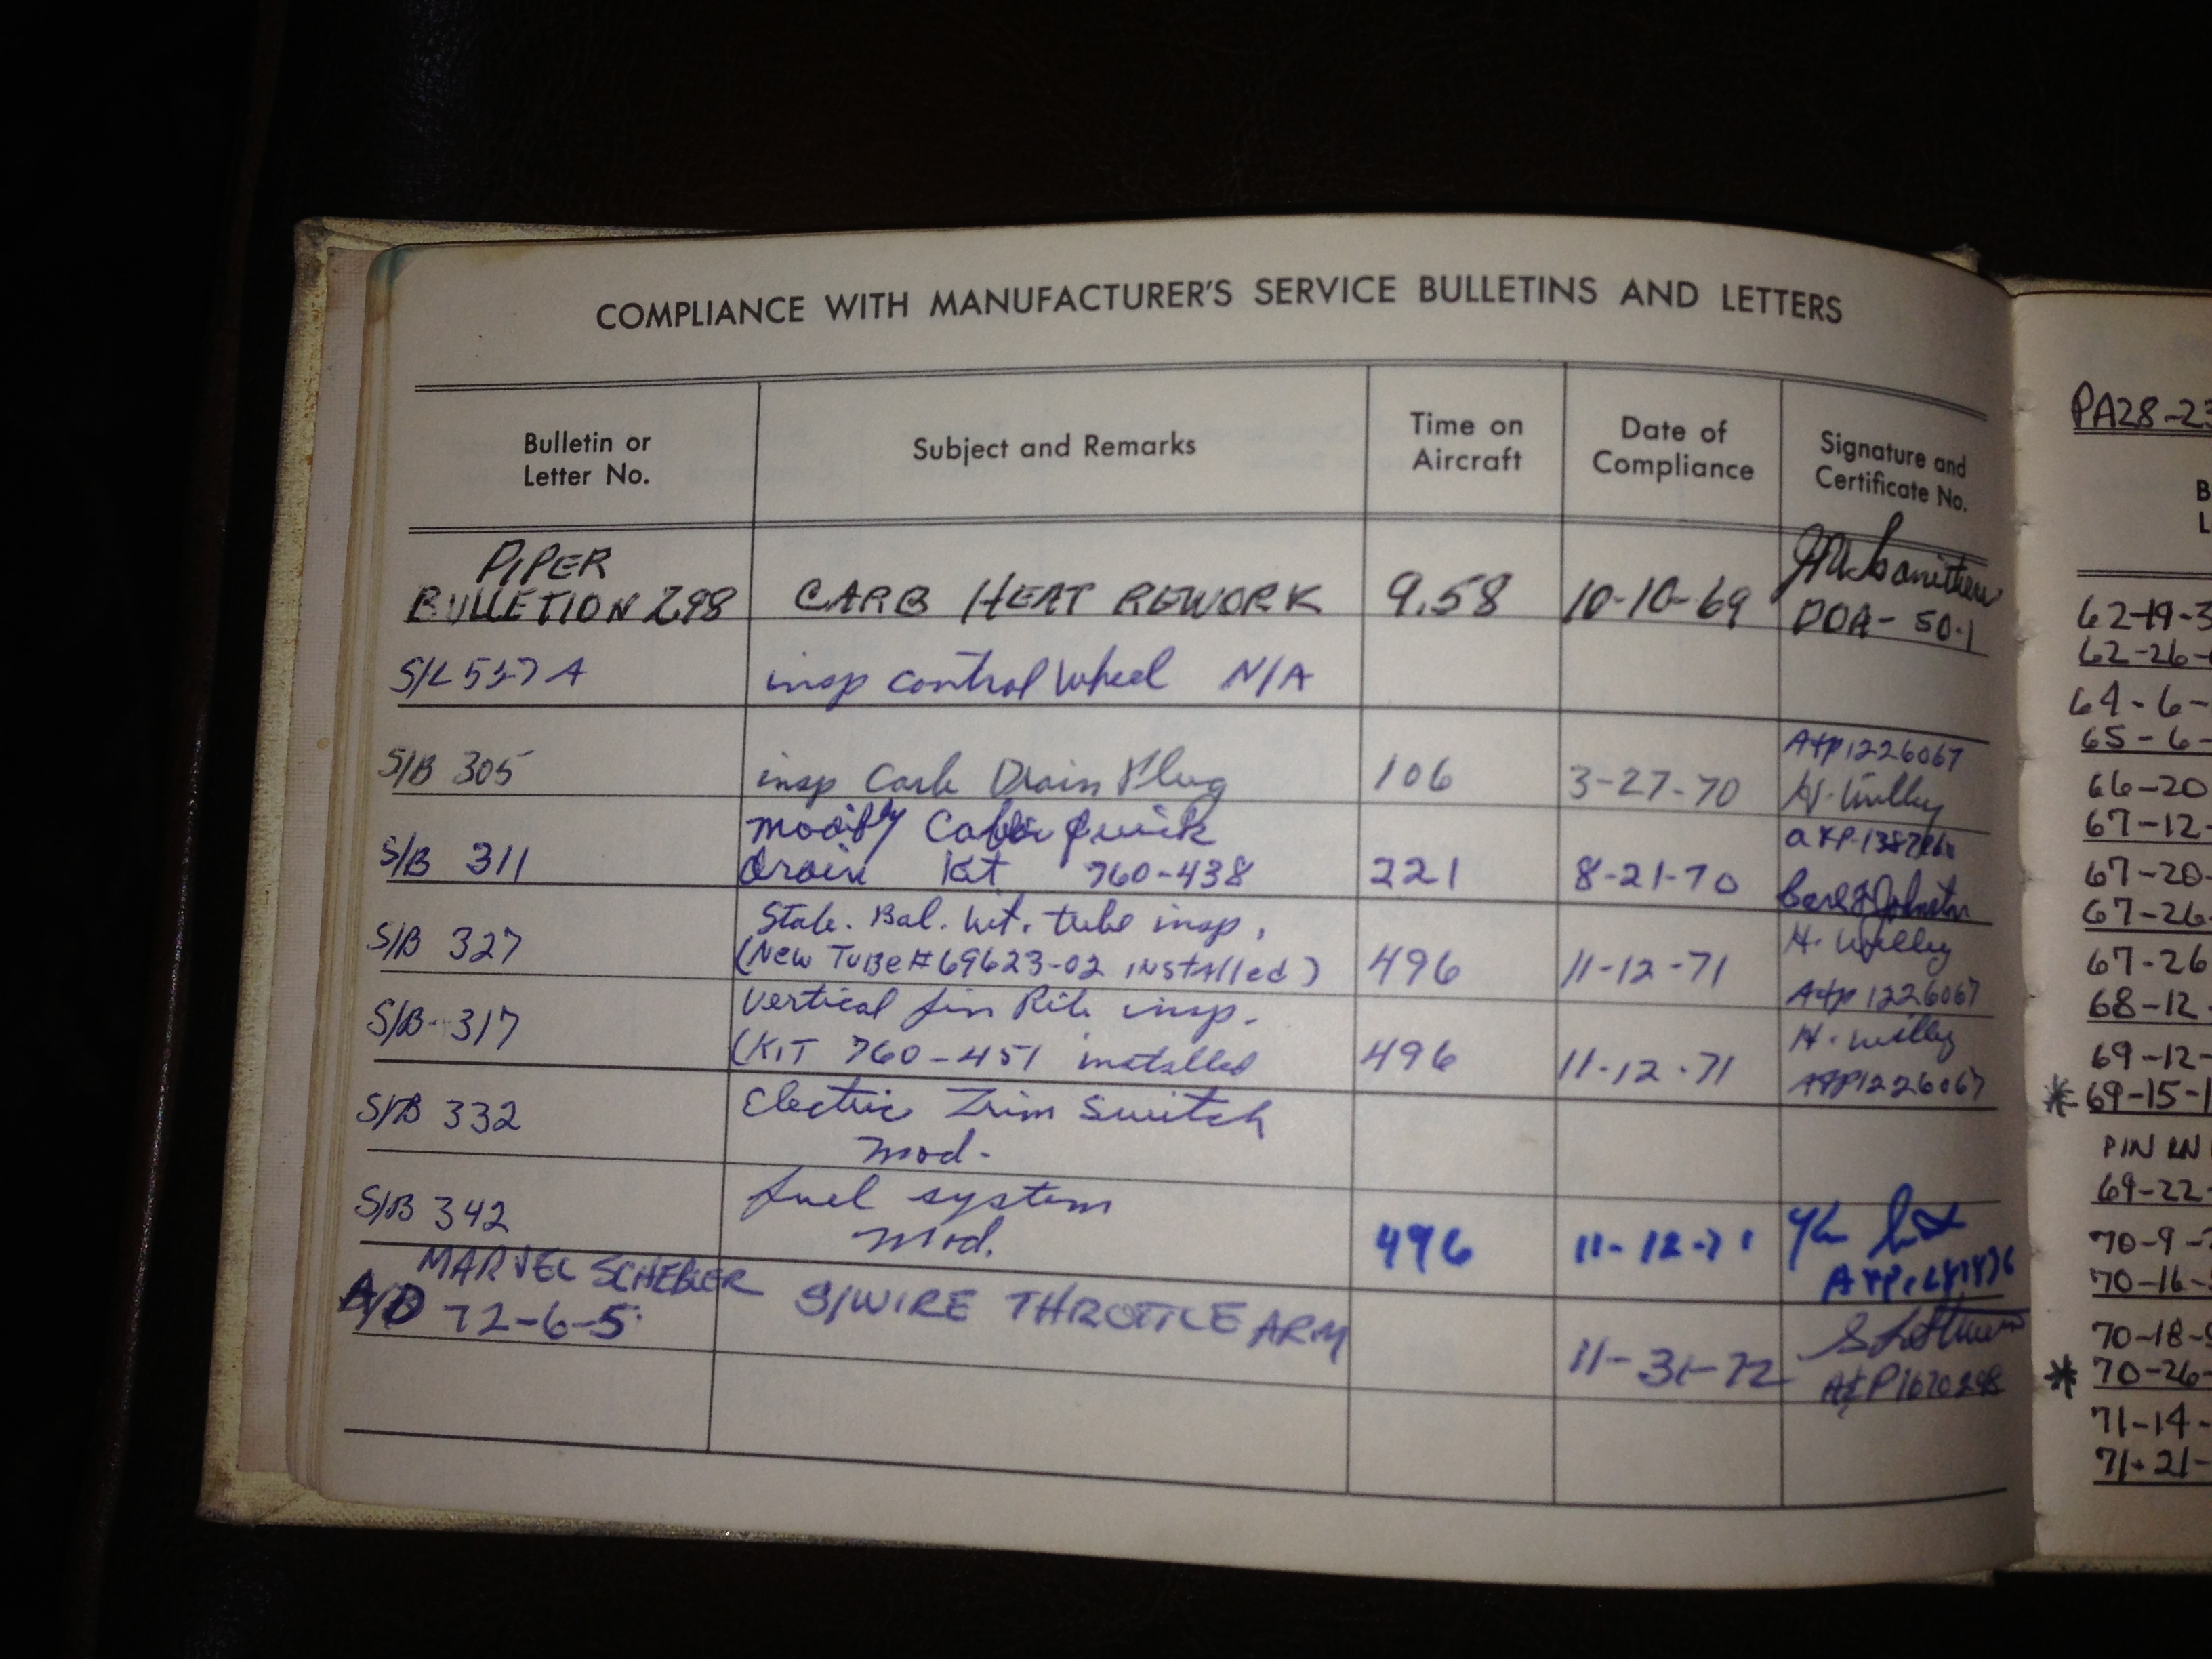 COMPLIANCE WITH MANUFACTURER'S SERVICE BULLETINS AND LETTERS
Bulletin or Letter No.
Subject and Remarks
Time on Aircraft
Date of Compliance
Signature and Certificate No.
PIPER
BULLETION 298 CARB HEAT REWORK 9.58 10-10-69
DOA- 50-1
S/L 537 A insp control wheel N/A
S/B 305 insp Carb Drain Plug 106 3-27-70 A+P 1226067
H. Willey
S/B 311 modify quick
drain Kit 760-438 221 8-21-70
S/B 327 Stab. Bal. wt. tube insp.
(New TuBe #69623-02 iNstAlled) 496 11-12-71 H. Willey
A+P 1226067
S/B-317 Vertical fin Rib insp.
(KIT 760-451 installed 496 11-12-71 H. Willey
A+P 1226067
S/B 332 Electric Trim Switch
mod.
S/B 342 fuel system
mod. 496 11-12-71
MARVEL SCHEBLER
A/D 72-6-5 S/WIRE THROTTLE ARM 11-31-72
A&P 1670298
PA28-23
B
L
62-19-3
62-26-
64-6-
65-6-
66-20
67-12-
67-20-
67-26-
67-26
68-12
69-12-
* 69-15-1
PIN
69-22-
70-9-7
70-16-
70-18-
* 70-26-
71-14-
71-21-